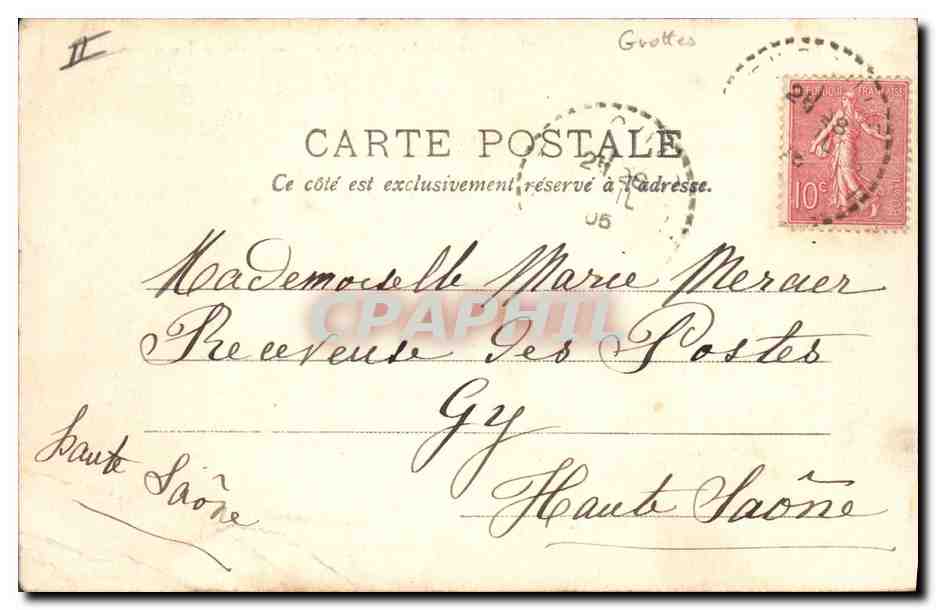 II
Grottes
REPUBLIQUE FRANÇAISE
10c
POSTES
CARTE POSTALE
Ce côté est exclusivement réservé à l'adresse.
05
Mademoiselle Marie Mercier
CPAPHIL
Receveuse des Postes
Gy
Haute Saône
Haute Saône